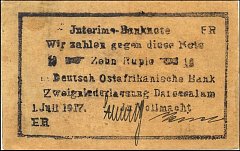 Interims-Banknote ER
Wir zahlen gegen diese Note
10 Zehn Rupie 10
Deutsch Ostafrikanische Bank
Zweigniederlassung Daressalam
1. Juli 1917. in Vollmacht
ER